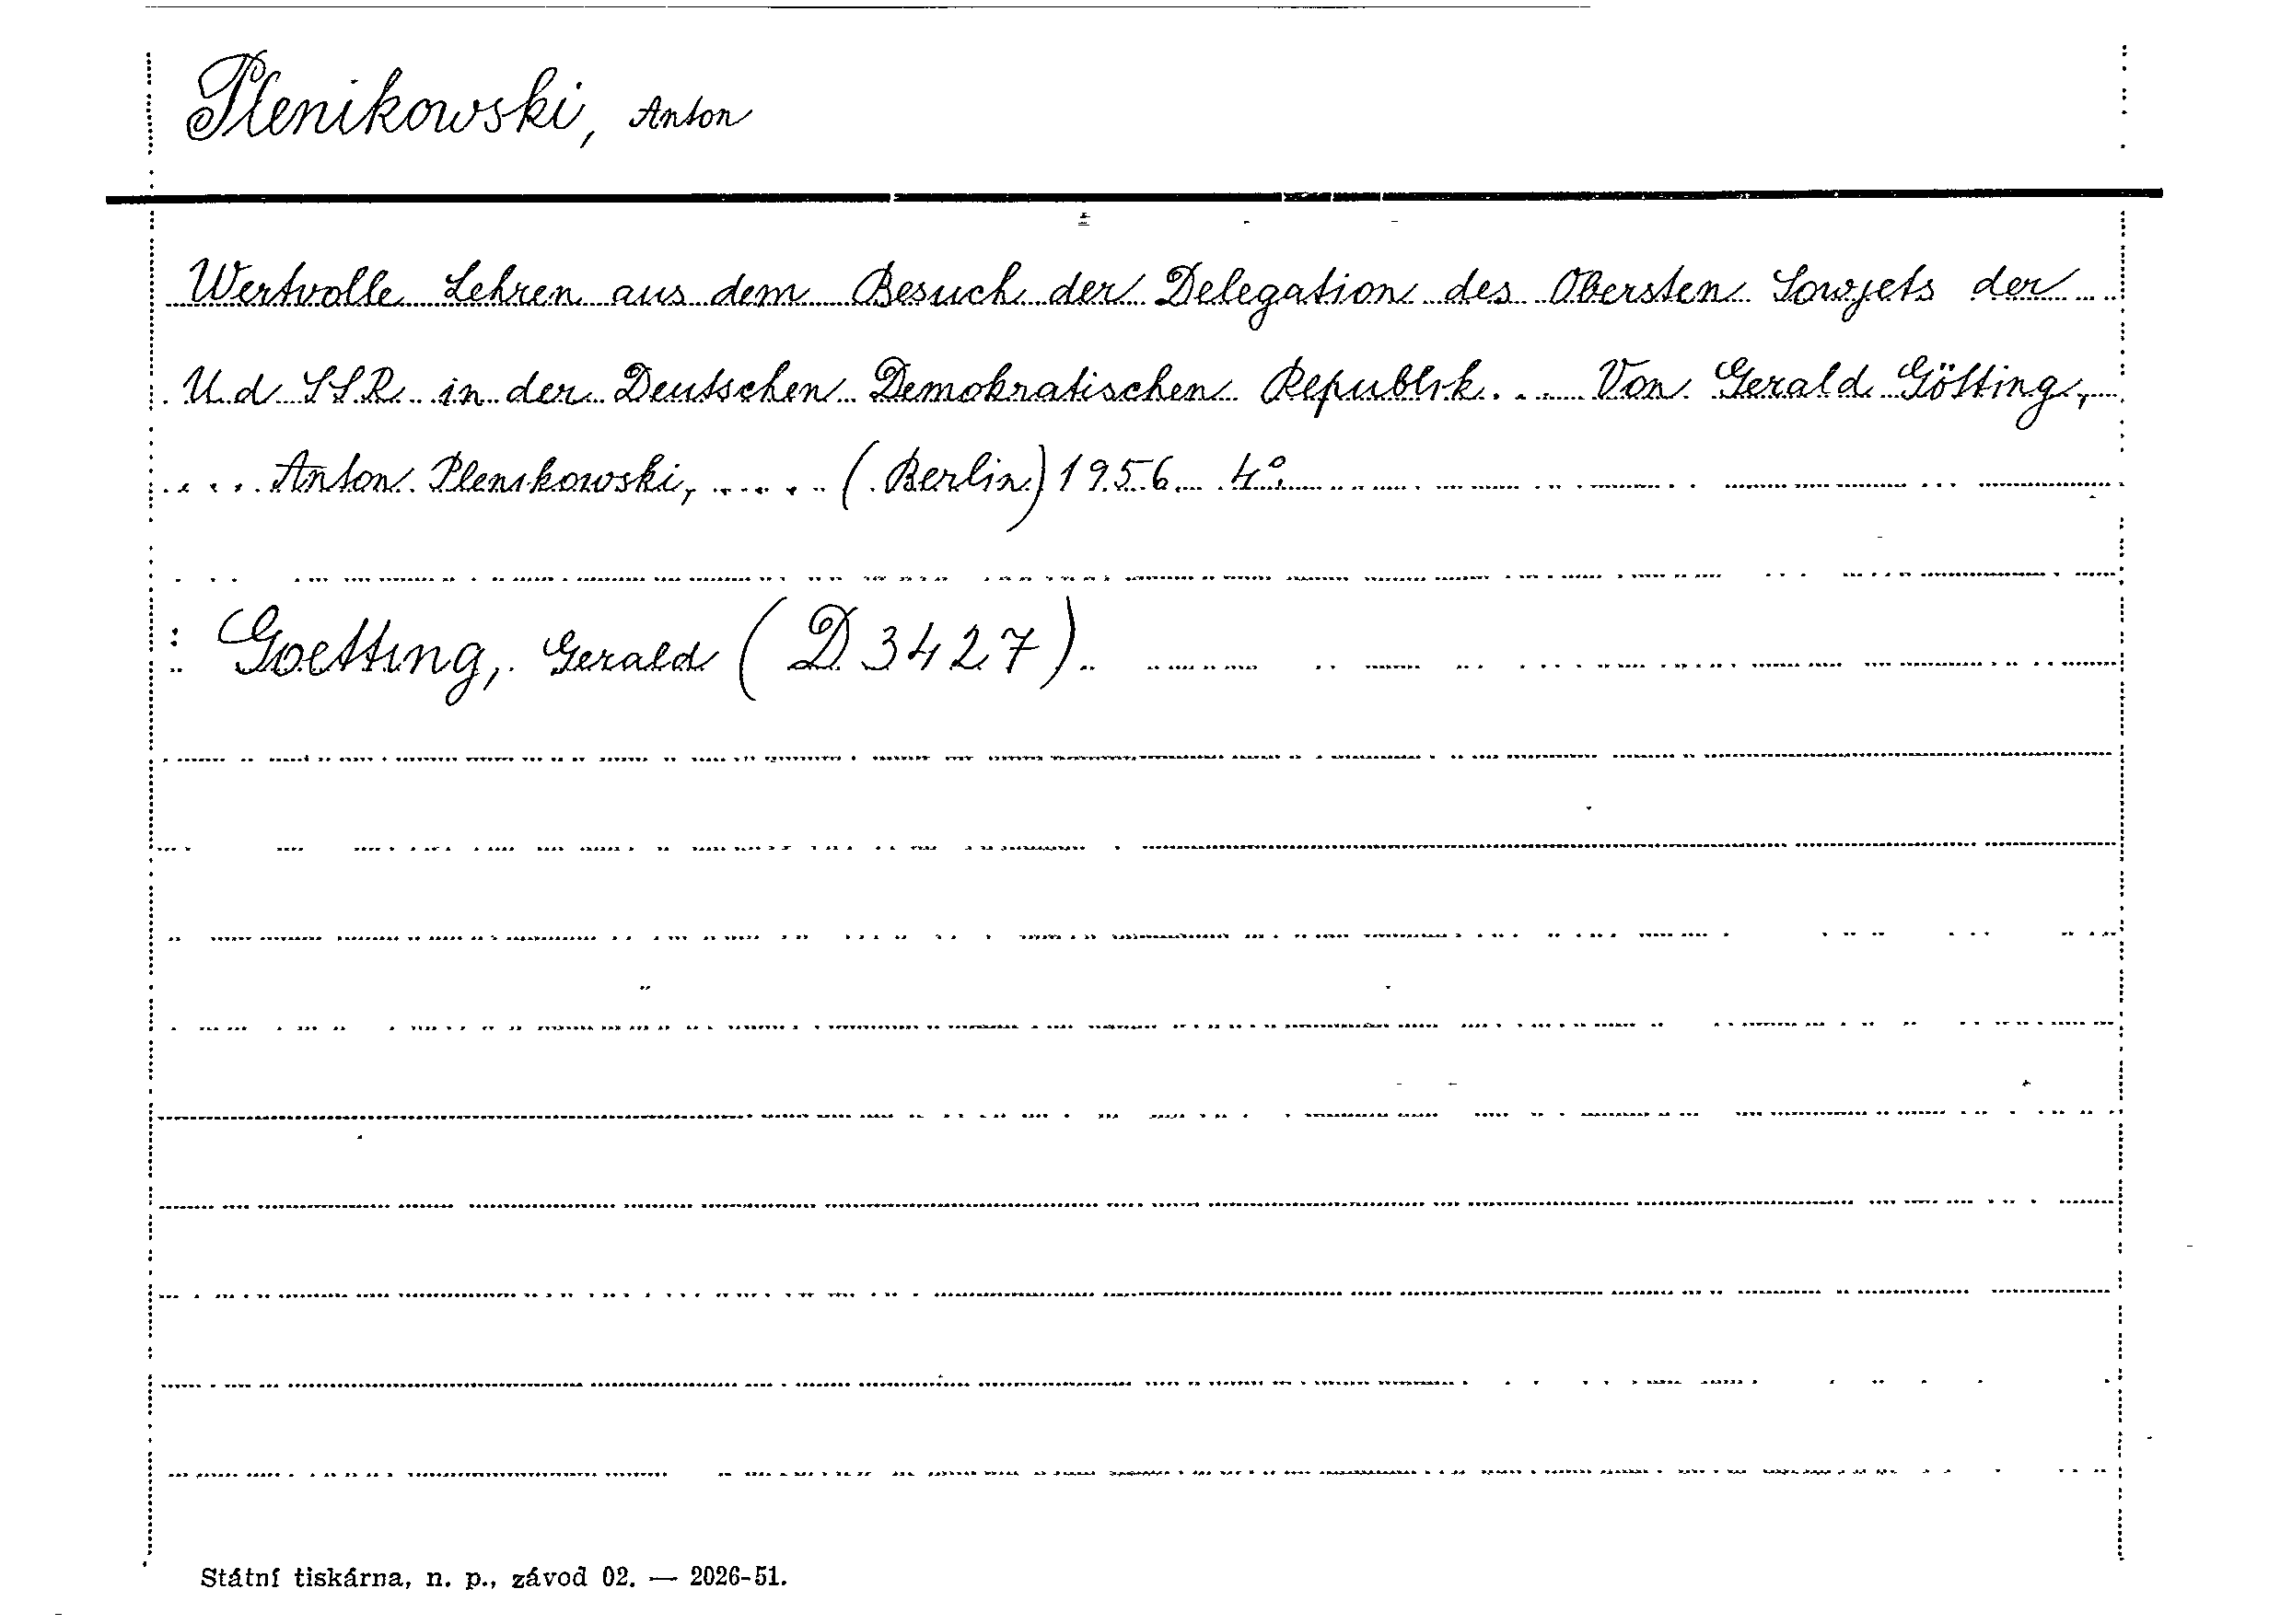 Plenikowski, Anton
Wertvolle Lehren aus dem Besuch der Delegation des Obersten Sowjets der
U d SSR in der Deutschen Demokratischen Republik... Von Gerald Götting,
.... Anton Plenikowski, ..... (Berlin) 1956. 4°.
: Goetting, Gerald (D 3427).
Státní tiskárna, n. p., závod 02. — 2026-51.